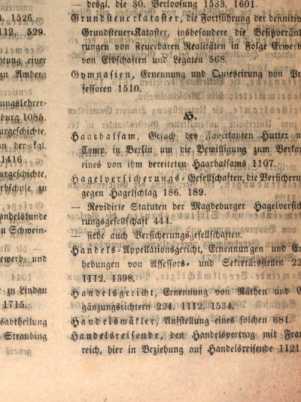 desgl. die 30. Verloosung 1533. 1601.
Grundsteuercataster, die Fortführung der definitiven
Grundsteuer-Kataster, insbesondere die Besitzverän
rungen von steuerbaren Realitäten in Folge Erwerb
von Erbschaften und Legaten 568.
Gymnasien, Ernennung und Quieszirung von Pro
fessoren 1510.
H.
Haarbalsam, Gesuch des Fabrikanten Hutter
Comp. in Berlin um die Bewilligung zum Verkauf
eines von ihm bereiteten Haarbalsams 1107.
Hagelversicherungs-Gesellschaften, die Versicherung
gegen Hagelschlag 186. 189.
— Revidirte Statuten der Magdeburger Hagelversich
rungsgesellschaft 444.
— siehe auch Versicherungsgesellschaften.
Handels-Appellationsgericht, Ernennungen und En
hebungen von Assessors- und Sekretärsstellen
1112. 1398.
Handelsgericht, Ernennung von Räthen und
gänzungsrichtern 294. 1112. 1534.
Handelsmäkler, Aufstellung eines solchen 681.
Handelsreisende, den Handelsvertrag mit Frank
reich, hier in Beziehung auf Handelsreisende 1121
1526.
1112. 529.
zu Amberg
burg 1085.
1416
zu Schwein-
zu Lindau
1715.
Straubing